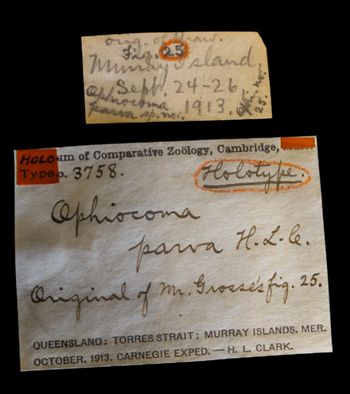 orig. of draw.
Fig. 25
Murray Island
Sept. 24-26
Ophiocoma 1913.
parva sp. nov.
25.
HOLO um of Comparative Zoölogy, Cambridge,
Type o. 3758. Holotype.
Ophiocoma
parva H.L.C.
Original of Mr. Grosse's fig. 25.
QUEENSLAND; TORRES STRAIT; MURRAY ISLANDS, MER.
OCTOBER, 1913. CARNEGIE EXPED. — H. L. CLARK.